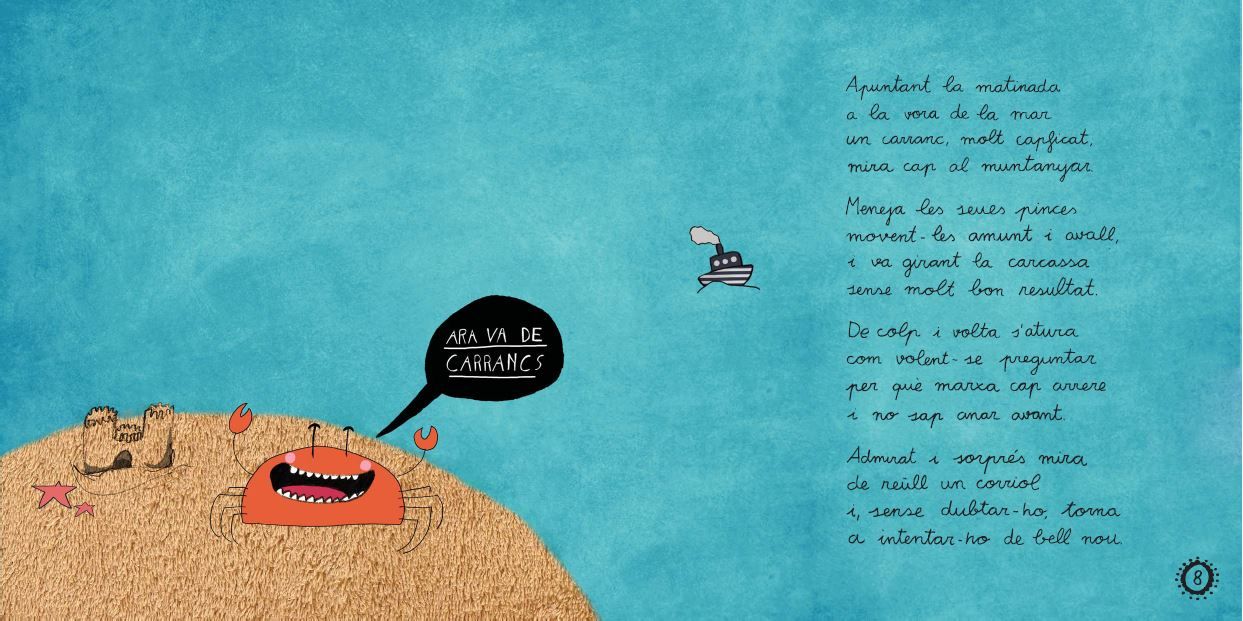 ARA VA DE
CARRANCS
Apuntant la matinada
a la vora de la mar
un carranc, molt capficat,
mira cap al muntanyar.
Meneja les seues pinces
movent-les amunt i avall,
i va girant la carcassa
sense molt bon resultat.
De colp i volta s'atura
com volent-se preguntar
per què marxa cap arrere
i no sap anar avant.
Admirat i sorprés mira
de reüll un corriol
i, sense dubtar-ho, torna
a intentar-ho de bell nou.
8